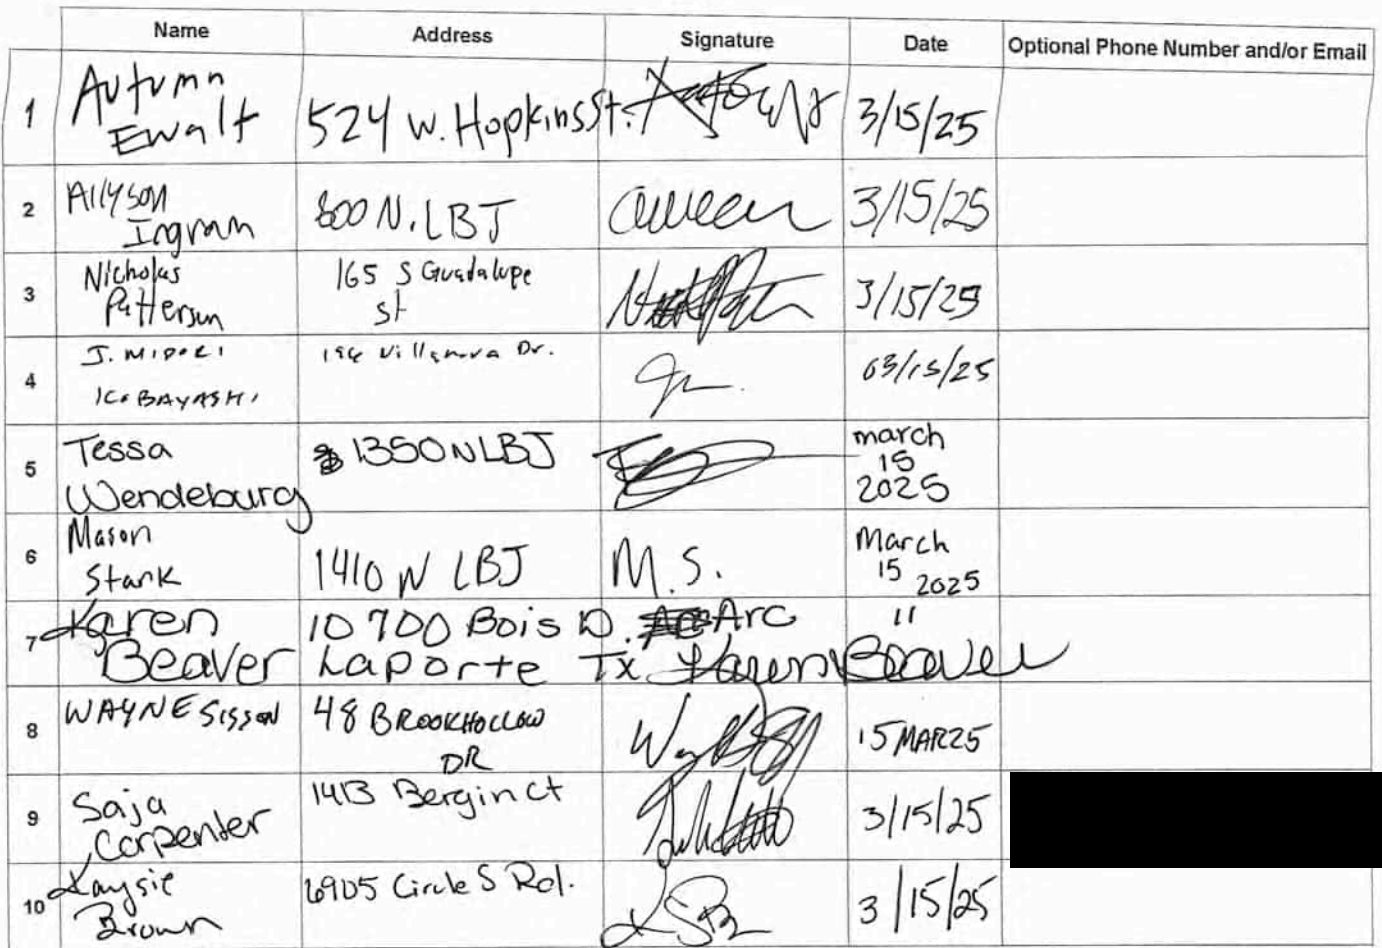 Name Address Signature Date Optional Phone Number and/or Email
1 Autumn Ewalt 524 W. Hopkins St. 3/15/25
2 Allyson Ingram 800 N. LBJ 3/15/25
3 Nicholas Patterson 165 S Guadalupe St 3/15/25
4 J. MIDORI KOBAYASHI Villanova Dr. 03/15/25
5 Tessa Wendeburg 1350 N LBJ March 15 2025
6 Mason Stark 1410 N LBJ M.S. March 15 2025
7 Karen Beaver 10700 Bois D. Arc Laporte Tx Karen Beaver "
8 WAYNE SISSON 48 BROOKHOLLOW DR 15 MAR25
9 Saja Carpenter 1413 Bergin Ct 3/15/25
10 Kaysie Brown 6905 Circle S Rd. 3/15/25